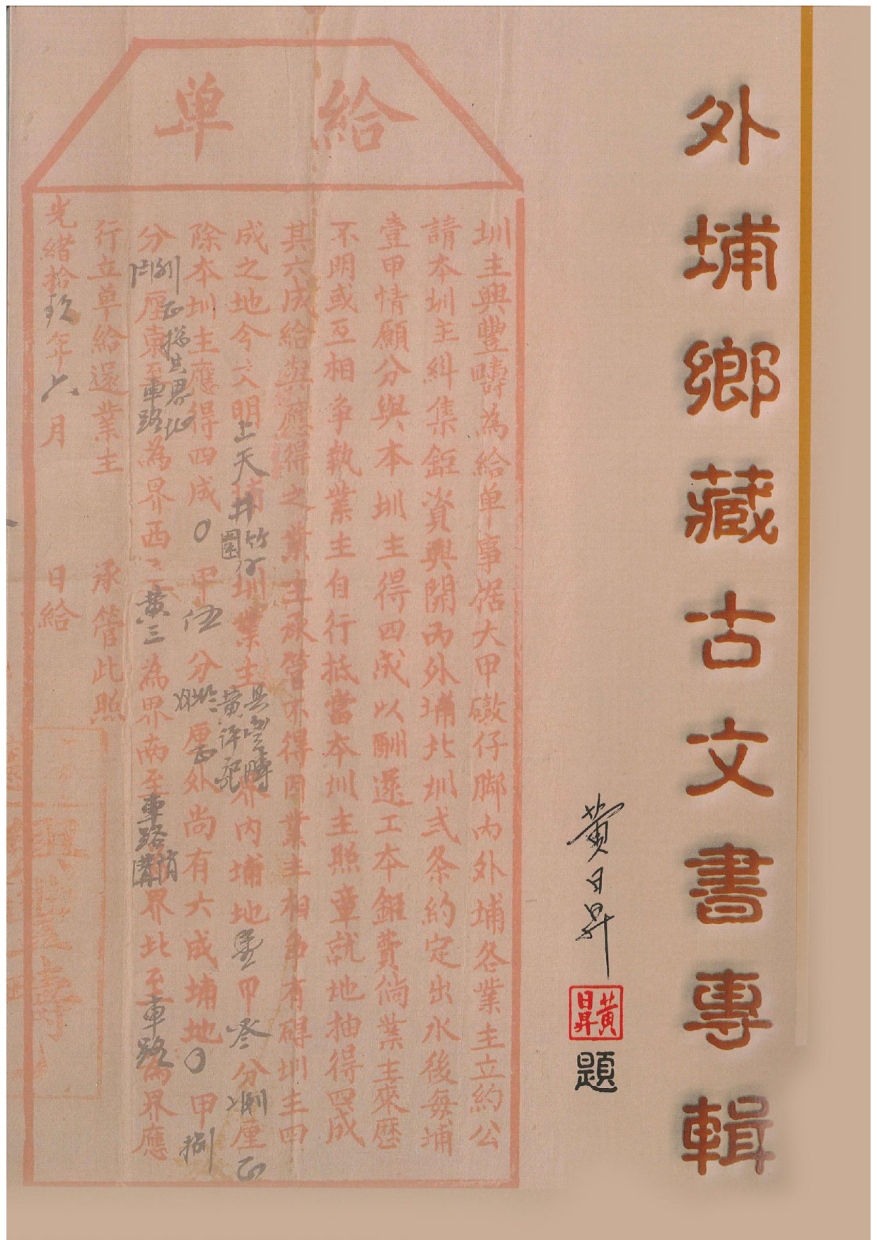 外埔鄉藏古文書專輯
黃日昇
黃日昇
題
給单
圳主興豐疇為給单事据大甲礅仔脚內外埔各業主立約公
請本圳主糾集鉅資興開內外埔北圳弍条約定出水後每埔
壹甲情願分與本圳主得四成以酬還工本鉅費倘業主來歷
不明或互相争執業主自行抵當本圳主照章就地抽得四成
其六成給與應得之業主承管不得因業主相争有碍圳主四
成之地今丈明上天井竹 圍埔圳業主 界内埔地 甲叁分 厘正
除本圳主應得四成〇甲伍分 厘 外尚有六成埔地〇甲捌
分 厘 東至車路為界西至黃三為界南至車路 溝 界北至車路為界應
行立单給還業主 承管此照
光緒拾玖年六月 日給